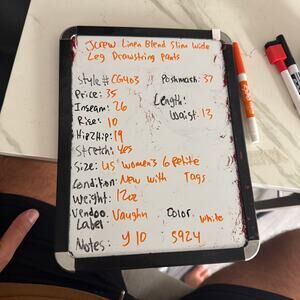 Jcrew Linen Blend Slim Wide
Leg Drawstring Pants
Style# CG403 Poshmark: 37
Price: 35
Inseam: 26 Length:
Rise: 10 Waist: 13
Hip2Hip: 19
Stretch: Yes
Size: US Women's 6 Petite
Condition: New With Tags
Weight: 12oz
Vendoo Label: Vaughn Color: White
Notes: Y10 5924